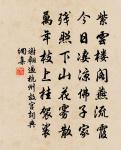 紫雲樓閣燕流霞
今日凄凉佛子家
殘照下山花霧散
萬年枝上挂袈裟
謝翱過杭州故宫詞典
網集